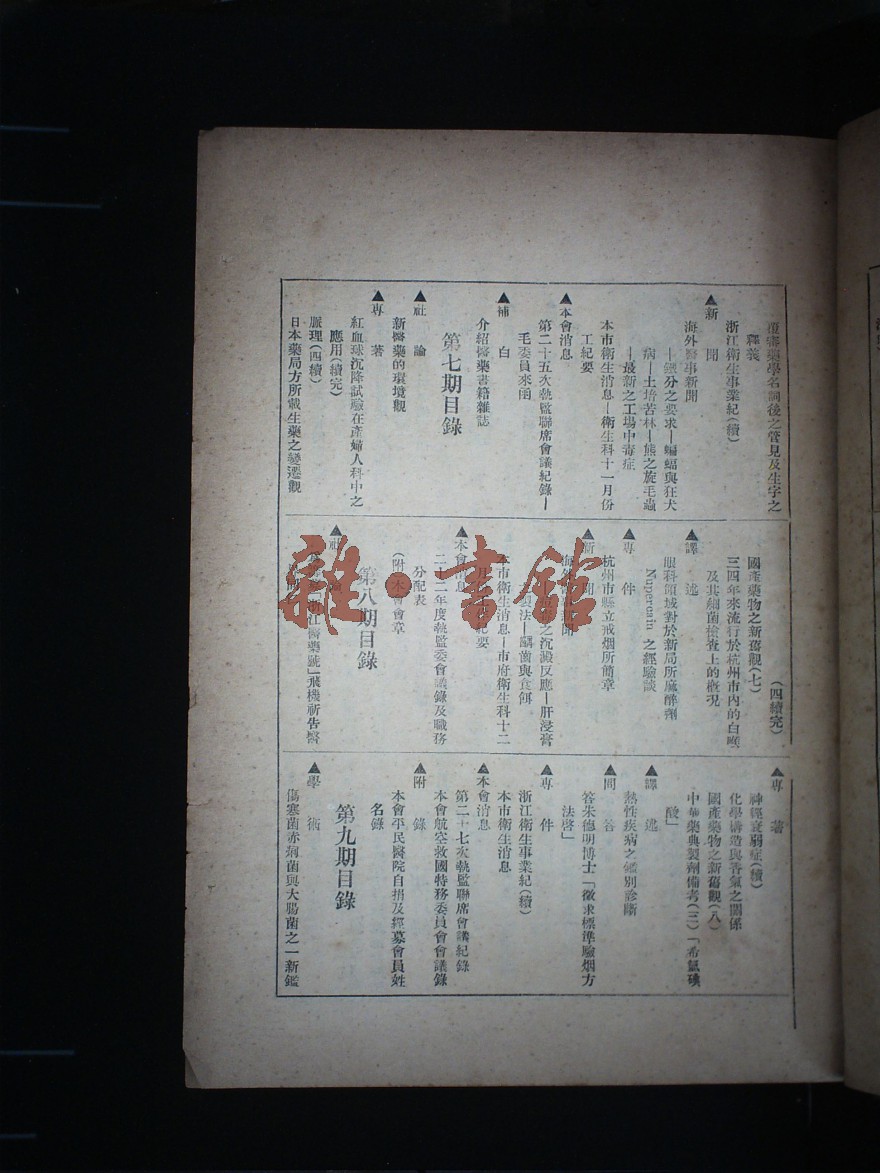 覆審藥學名詞後之管見及生字之
釋義
浙江衛生事業紀(續)
▲新 聞
海外醫事新聞
—鐵分之要求—蝙蝠與狂犬
病—土培苦林—熊之旋毛蟲
—最新之工場中毒症
本市衛生消息—衛生科十一月份
工紀要
▲本會消息
第二十五次執監聯席會議紀錄—
毛委員來函
▲補 白
介紹醫藥書籍雜誌
第七期目錄
▲社 論
新醫藥的環境觀
▲専 著
紅血球沉降試驗在產婦人科中之
應用(續完)
脈理(四續)
日本藥局方所載生藥之變遷觀
(四續完)
國產藥物之新舊觀(七)
三四年來流行於杭州市內的白喉
及其細菌檢查上的概況
▲譯 述
眼科領域對於新局所麻醉劑
Nupercain 之經驗談
▲専 件
杭州市縣立戒烟所簡章
▲新 聞
海
之沉澱反應—肝浸膏
製法—齲齒與食餌
本市衛生消息—市府衛生科十二
月 紀要
▲本會消息
二十二年度執監委會議錄及職務
分配表
(附)本會會章
第八期目錄
▲社
浙江醫藥號」飛機祈告醫
▲専 著
神經衰弱症(續)
化學構造與香氣之關係
國產藥物之新舊觀(八)
中華藥典製劑備考(三)「希氫碘
酸」
▲譯 述
熱性疾病之鑑別診斷
▲問 答
答朱德明博士「徵求標準驗烟方
法啓」
▲専 件
浙江衛生事業紀(續)
本市衛生消息
▲本會消息
第二十七次執監聯席會議紀錄
本會航空救國特務委員會會議錄
▲附 錄
本會平民醫院自捐及經募會員姓
名錄
第九期目錄
▲學 術
傷寒菌赤痢菌與大腸菌之一新鑑
雜·書館